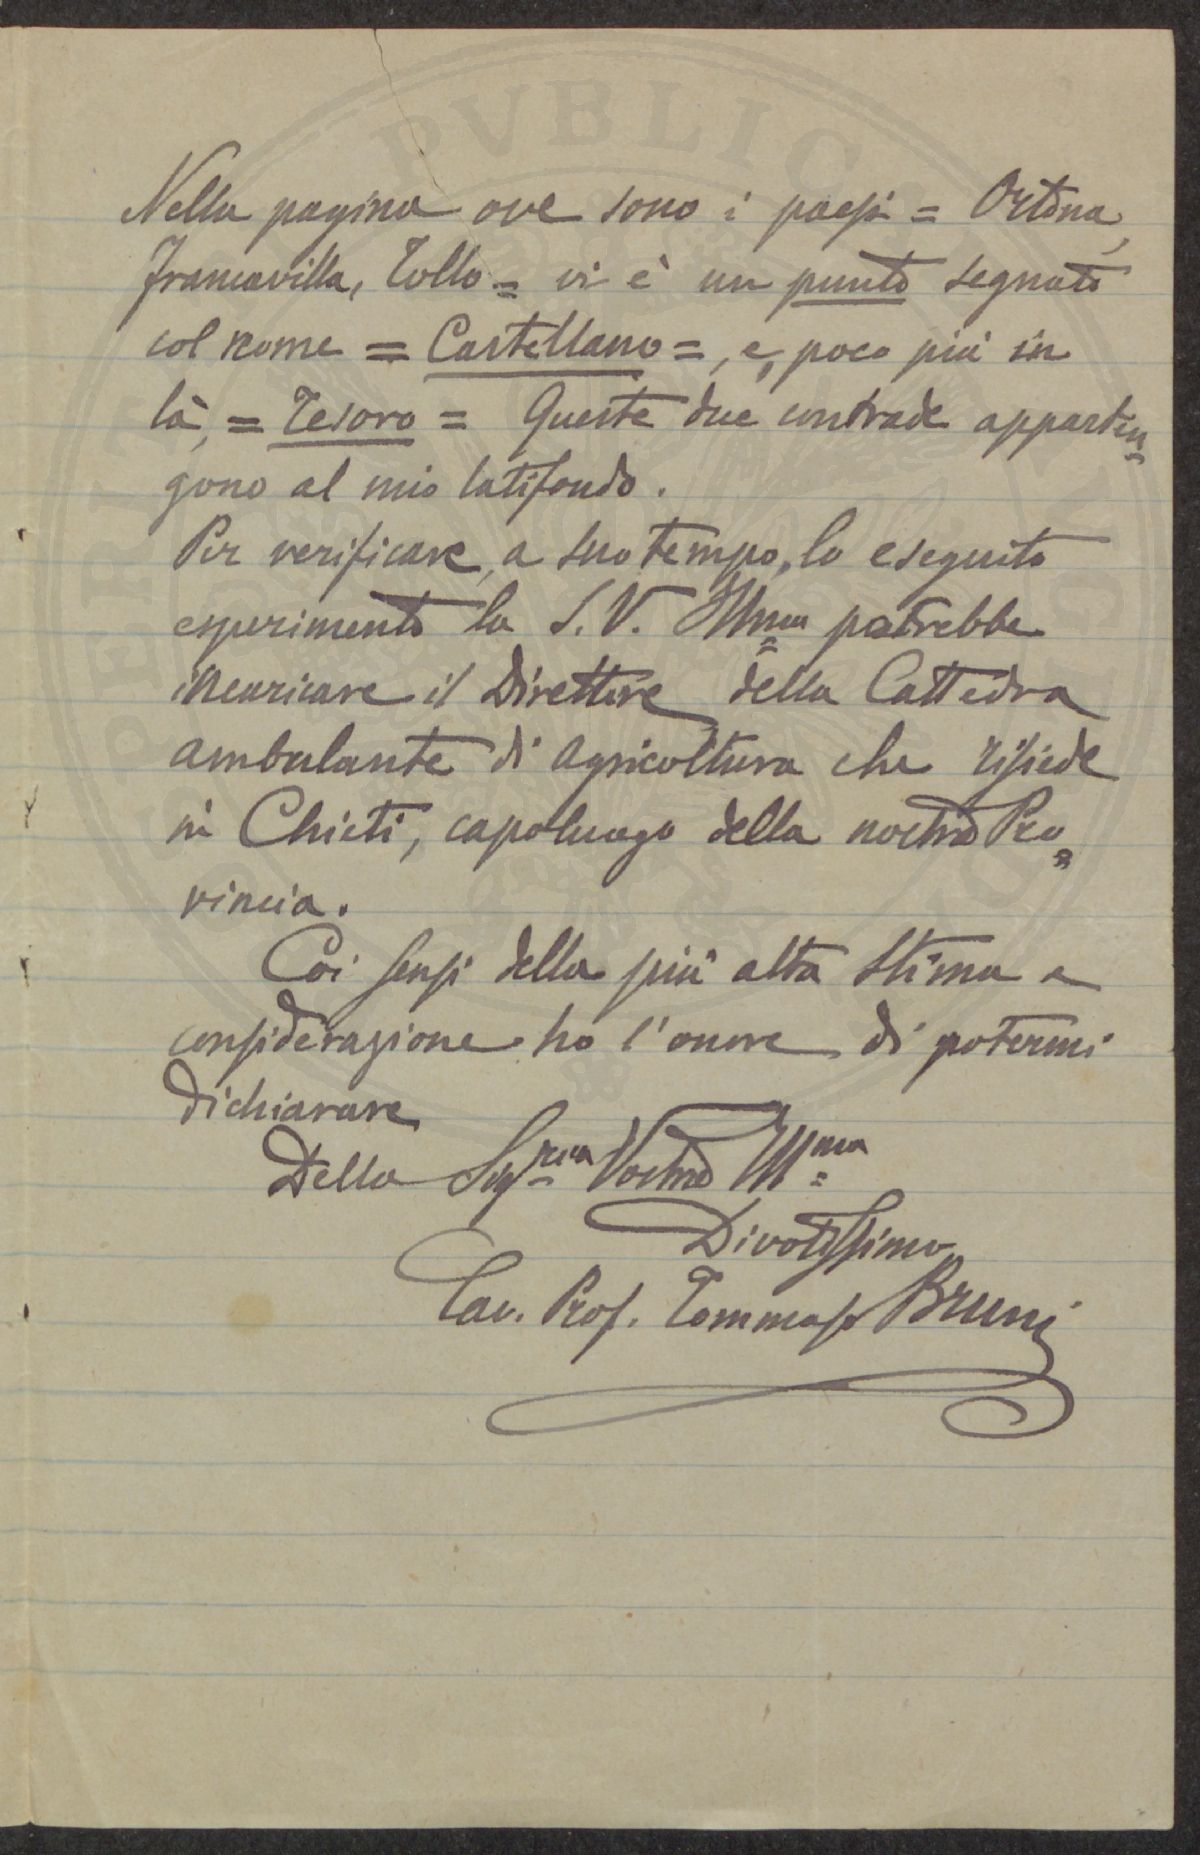 Nella pagina ove sono i paesi = Ortona,
Francavilla, Tollo = vi è un punto segnato
col nome = Castellano =, e, poco più in
là, = Tesoro = Queste due contrade apparten=
gono al mio latifondo.
Per verificare, a suo tempo, lo eseguito
esperimento la S. V. Illma potrebbe
incaricare il Direttore della Cattedra
ambulante di agricoltura che risiede
in Chieti, capoluogo della nostra Pro=
vincia.
Coi sensi della più alta stima e
considerazione ho l'onore di potermi
dichiarare
Della Sigria Vostra Illma
Divotissimo
Cav. Prof. Tommaso Bruni